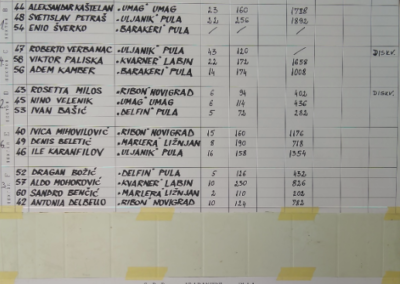 44 ALEKSANDAR KAŠTELAN "UMAG" UMAG 23 160 1728
48 SVETISLAV PETRAŠ "ULJANIK" PULA 22 256 1892
54 ENIO ŠVERKO "BARAKERI" PULA / / /
47 ROBERTO VERBANAC "ULJANIK" PULA 43 120 / DISKV.
58 VIKTOR PALISKA "KVARNER" LABIN 22 172 1658
56 ADEM KAMBER "BARAKERI" PULA 14 174 1008
43 ROSETTA MILOS "RIBON" NOVIGRAD 6 94 402 DISKV.
45 NINO VELENIK "UMAG" UMAG 6 114 436
53 IVAN BAŠIĆ "DELFIN" PULA 5 72 282
40 IVICA MIHOVILOVIĆ "RIBON" NOVIGRAD 15 160 1176
49 DENIS BELETIĆ "MARLERA" LIŽNJAN 8 190 718
46 ILE KARANFILOV "ULJANIK" PULA 16 158 1354
52 DRAGAN BOŽIĆ "DELFIN" PULA 5 126 452
57 ALDO MOHOROVIĆ "KVARNER" LABIN 10 230 826
60 SANDRO BENČIĆ "MARLERA" LIŽNJAN 2 110 202
42 ANTONIA DELBELLO "RIBON" NOVIGRAD 10 124 782